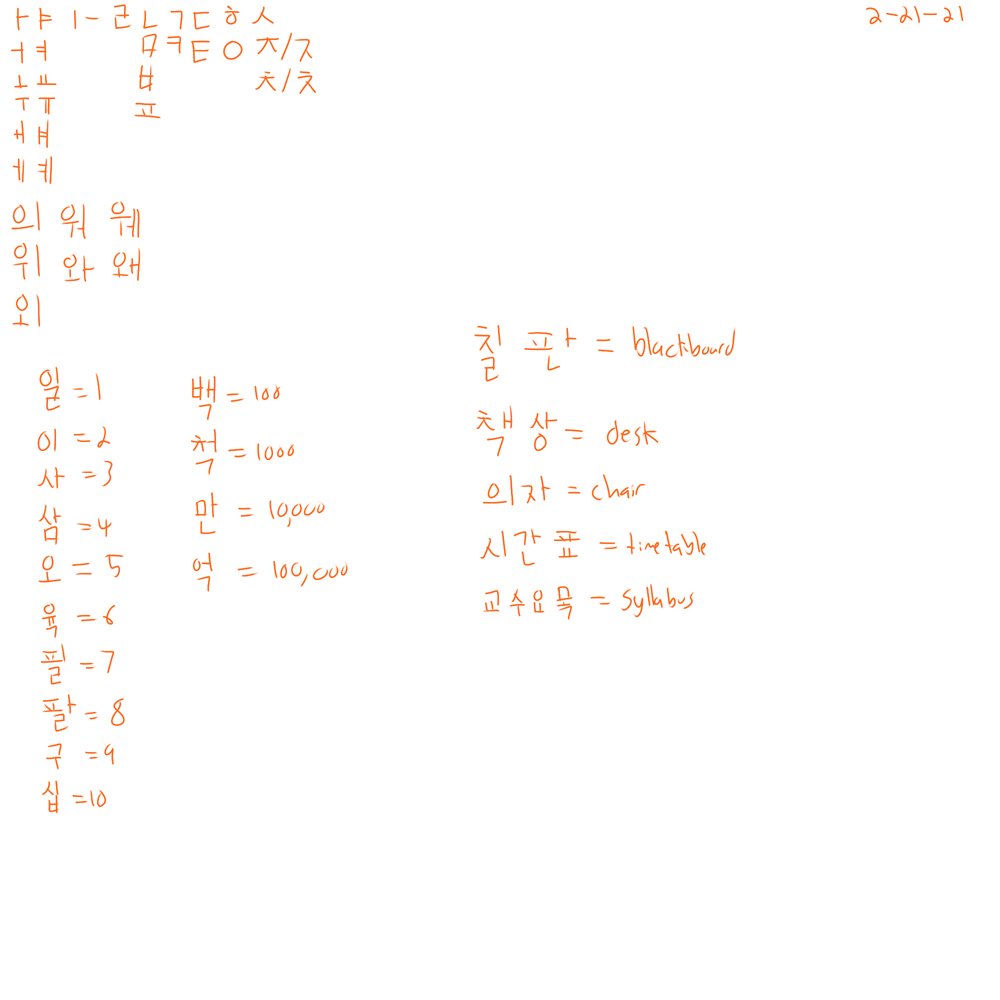 2-21-21
ㅏ ㅑ ㅣ ㅡ ㄹ ㄴ ㄱ ㄷ ㅎ ㅅ
ㅓ ㅕ ㅁ ㅋ ㅌ ㅇ ㅈ/ㅈ
ㅗ ㅛ ㅂ ㅊ/ㅊ
ㅜ ㅠ ㅍ
ㅐ ㅒ
ㅔ ㅖ
의 워 웨
위 와 왜
외
일 = 1
이 = 2
사 = 3
삼 = 4
오 = 5
육 = 6
필 = 7
팔 = 8
구 = 9
십 = 10
백 = 100
척 = 1000
만 = 10,000
억 = 100,000
칠판 = blackboard
책상 = desk
의자 = chair
시간표 = timetable
교수요목 = syllabus